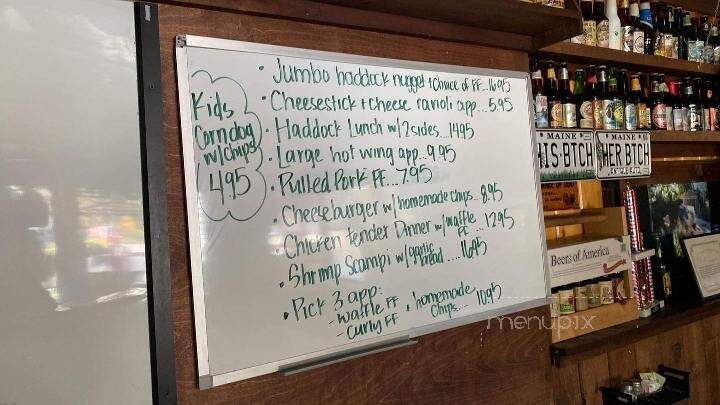 Kids
Corndog
w/chips
4.95
• Jumbo haddock nugget + choice of FF...16.95
• Cheesestick + cheese ravioli app...5.95
• Haddock Lunch w/2 sides...14.95
• Large hot wing app...9.95
• Pulled Pork FF...7.95
• Cheeseburger w/homemade chips...8.95
• Chicken tender Dinner w/waffle FF...12.95
• Shrimp Scampi w/garlic bread....16.95
• Pick 3 app:
- waffle FF • homemade
- curly FF chips...10.95
MAINE
HIS·BITCH
MAINE
HER BITCH
Beers of America
menupix